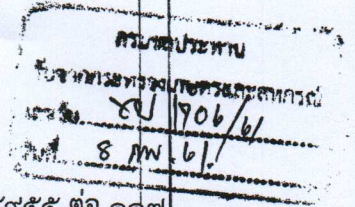 กรมชลประทาน
รับจากกระทรวงเกษตรและสหกรณ์
เลขรับ 1906/61
วันที่ 8 กพ. 61
ต่อ ๑๑๗